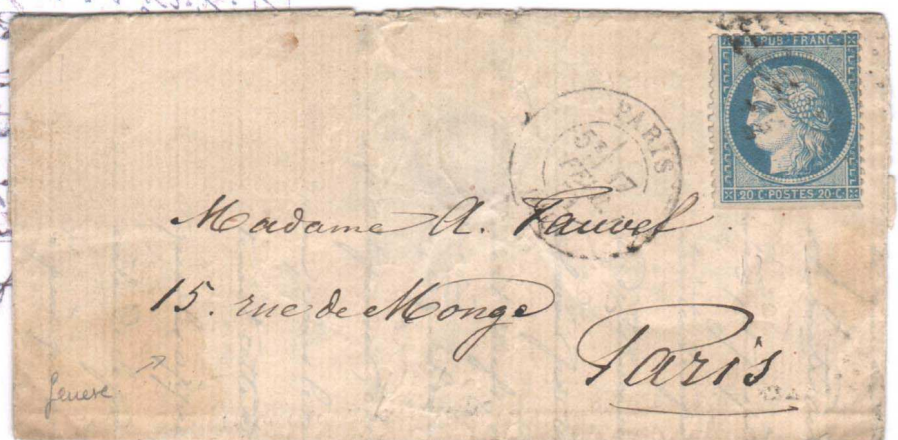 REPUB · FRANC ·
20 C · POSTES · 20 C
PARIS
5E 17
FEVR
Madame A. Fauvel
15. rue de Monge
Paris